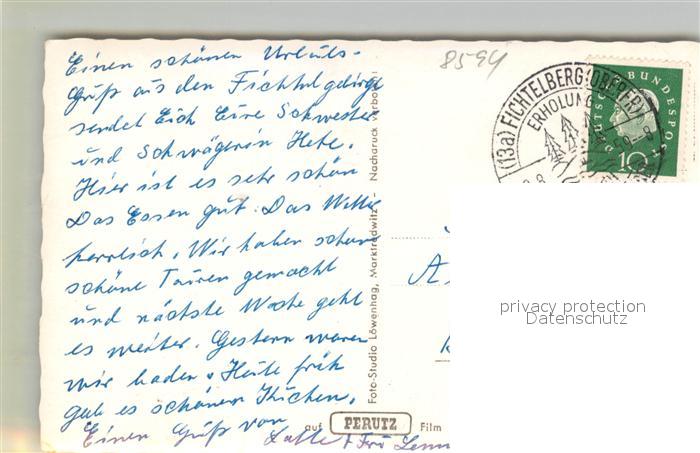 Einen schönen Urlaubs-
Gruß aus den Fichtelgebirge
sendet Eich Eure Schwester
und Schwägerin Hete.
Hier ist es sehr schön
Das Essen gut. Das Wetter
herrlich. Wir haben schon
schöne Turen gemacht
und nächste Woche geht
es weiter. Gestern waren
wir baden. Heute früh
gab es schönen Kuchen.
Einen Gruß von
Lotte + Fri
Foto-Studio Löwenhag, Marktredwitz - Nachdruck verboten!
auf PERUTZ Film
8594
(13a) FICHTELBERG (OBERFR)
ERHOLUNG
DEUTSCHE BUNDESPOST
10
A
privacy protection
Datenschutz